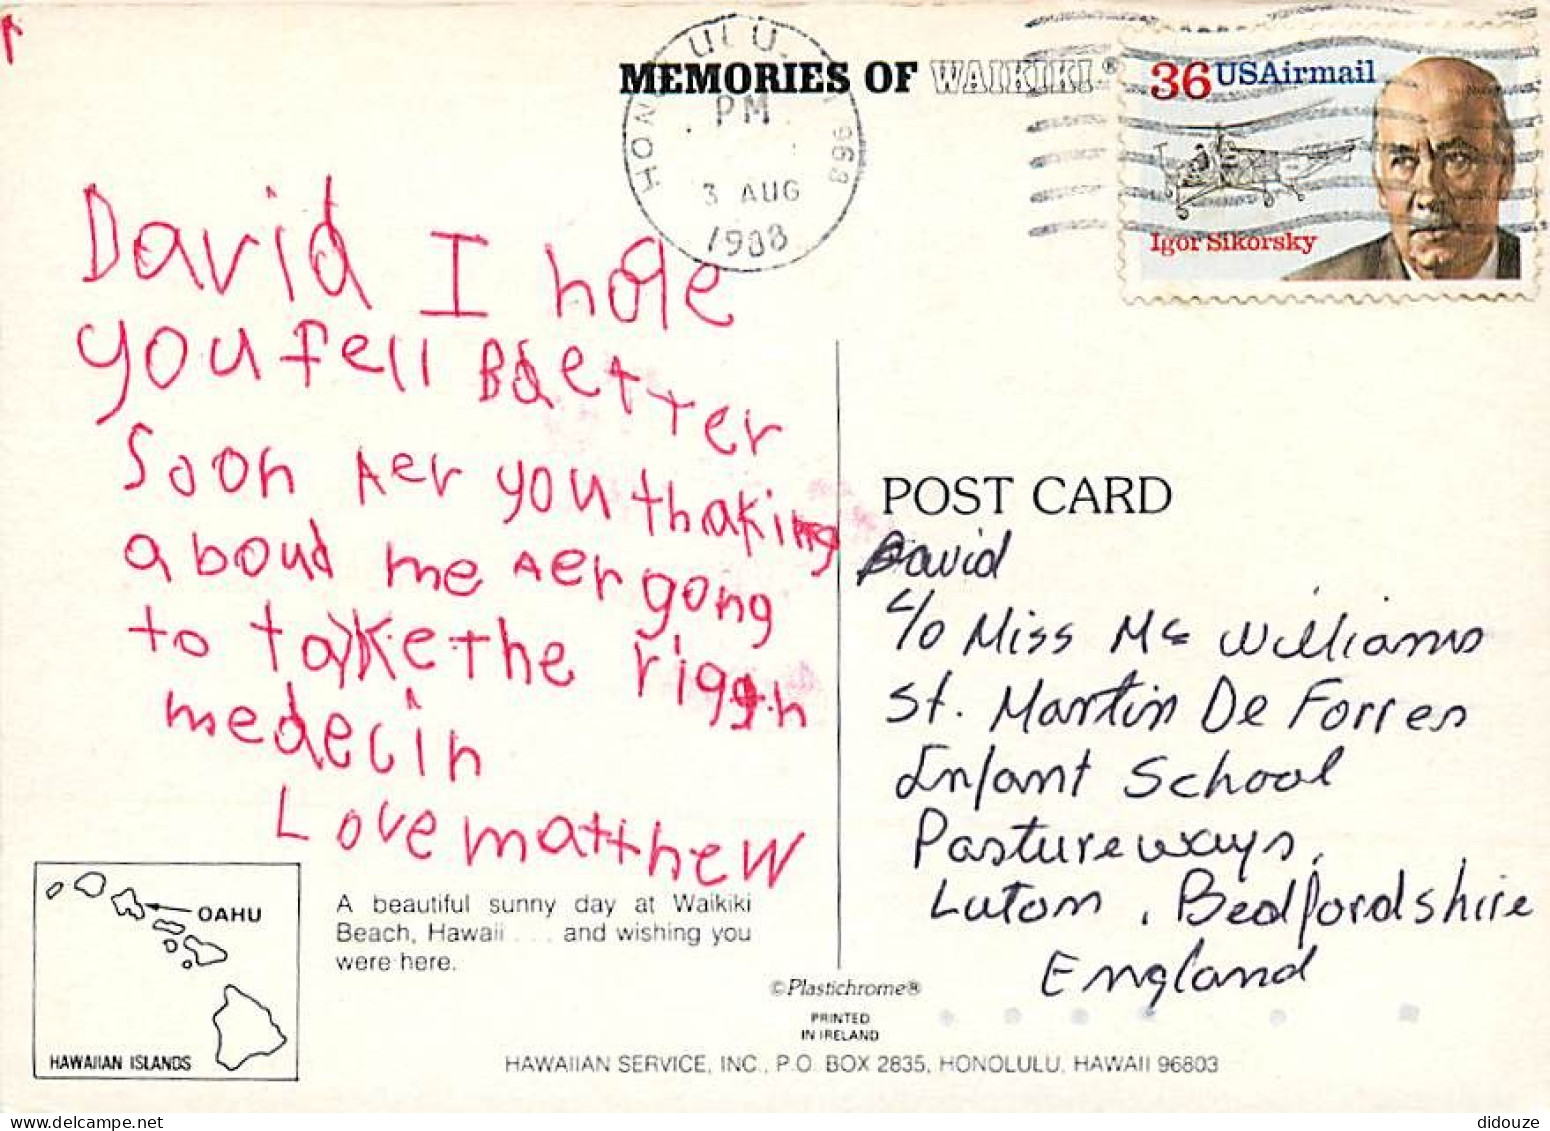 MEMORIES OF WAIKIKI®
HONOLULU,
PM
3 AUG
1988
968
36 USAirmail
Igor Sikorsky
David I hope
you fell Baetter
Soon Aer you thaking
aboud me Aer gong
to take the riggth
medecin
Love matthew
POST CARD
David
c/o Miss Mc Williams
St. Martin De Forres
Infant School
Pastureways,
Luton, Bedfordshire
England
OAHU
HAWAIIAN ISLANDS
A beautiful sunny day at Waikiki
Beach, Hawaii . . . and wishing you
were here.
©Plastichrome®
PRINTED
IN IRELAND
HAWAIIAN SERVICE, INC., P.O. BOX 2835, HONOLULU, HAWAII 96803
didouze